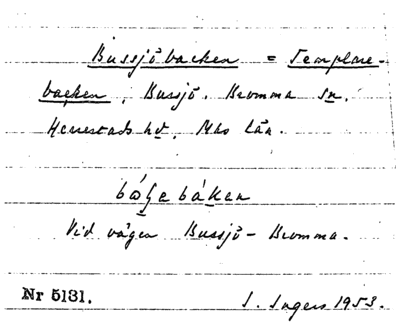 Bussjöbacken = Templare-
backen, Bussjö. Bromma sn.
Herrestads hd, Mas län.
Vid vägen Bussjö - Bromma.
Nr 5131. I. Ingers 1953.